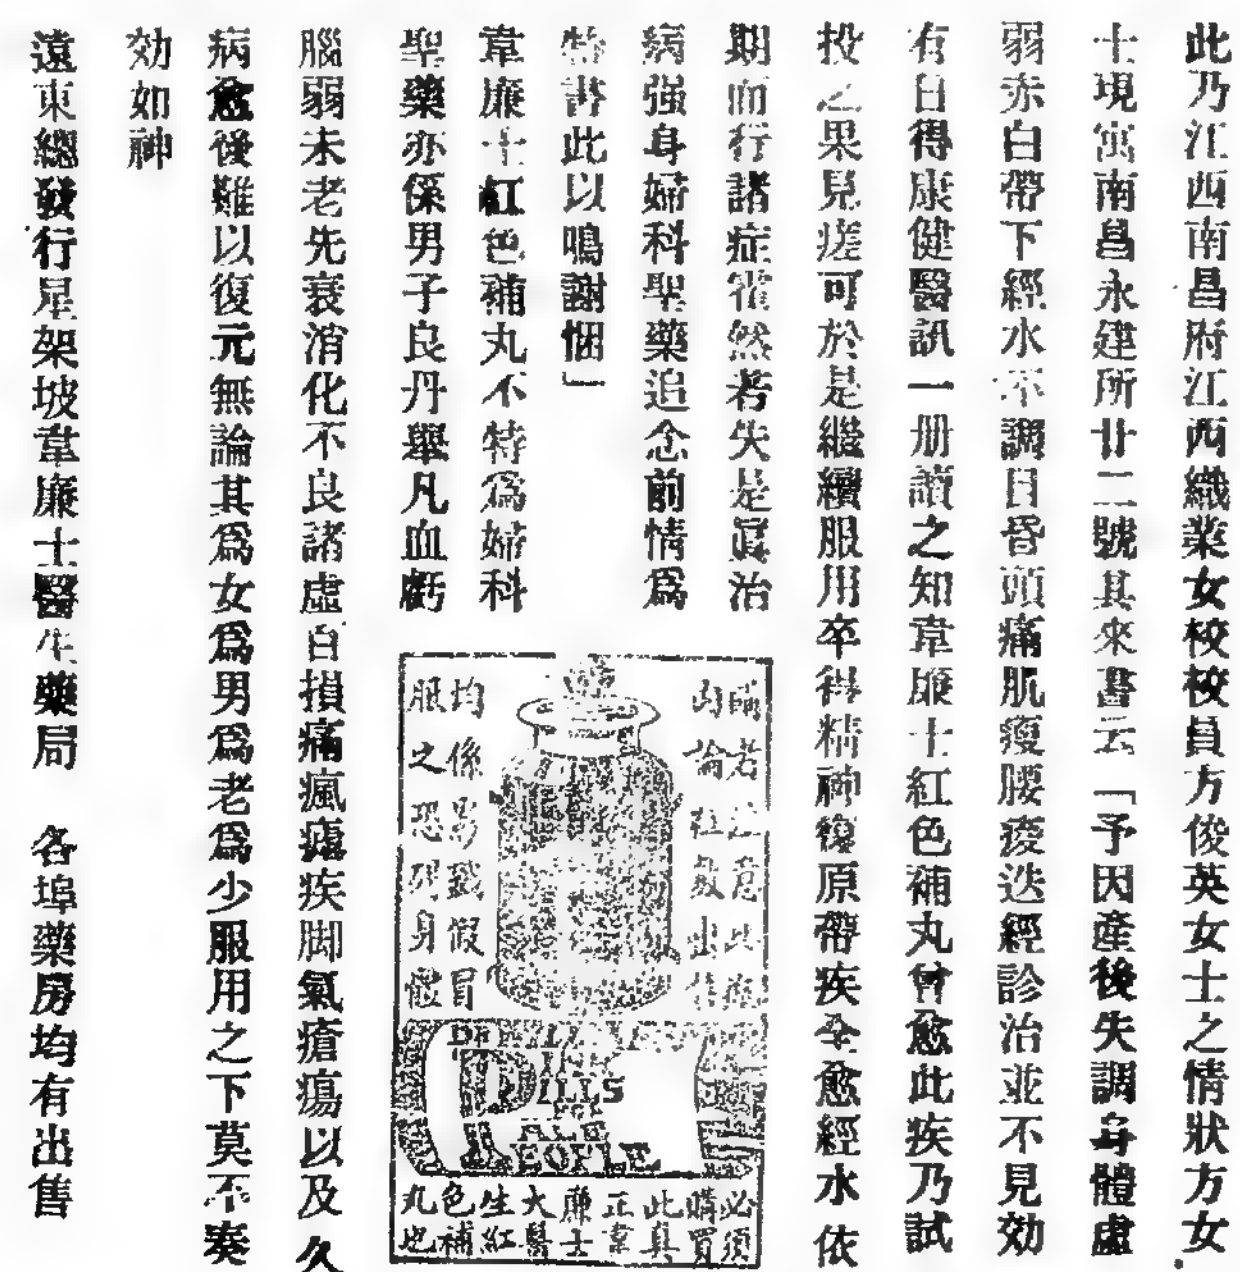 此乃江西南昌府江西織業女校校員方俊英女士之情狀方女
士現寓南昌永建所廿二號其來書云「予因產後失調身體虛
弱赤白帶下經水不調目昏頭痛肌瘦腰痠迭經診治並不見効
有日得康健醫訊一册讀之知韋廉士紅色補丸曾愈此疾乃試
投之果見瘥可於是繼續服用卒得精神復原帶疾全愈經水依
期而行諸症霍然若失是眞治
病强身婦科聖藥追念前情爲
特書此以鳴謝悃」
韋廉士紅色補丸不特爲婦科
聖藥亦係男子良丹舉凡血虧
腦弱未老先衰消化不良諸虛百損痛瘋瘧疾脚氣瘡瘍以及久
病愈後難以復元無論其爲女爲男爲老爲少服用之下莫不奏
効如神
遠東總發行星架坡韋廉士醫生藥局 各埠藥房均有出售
均係影戤假冒
服之恐傷身體
PILLS
PEOPLE
必須
購買
此眞
正韋
廉士
大醫
生紅
色補
丸也